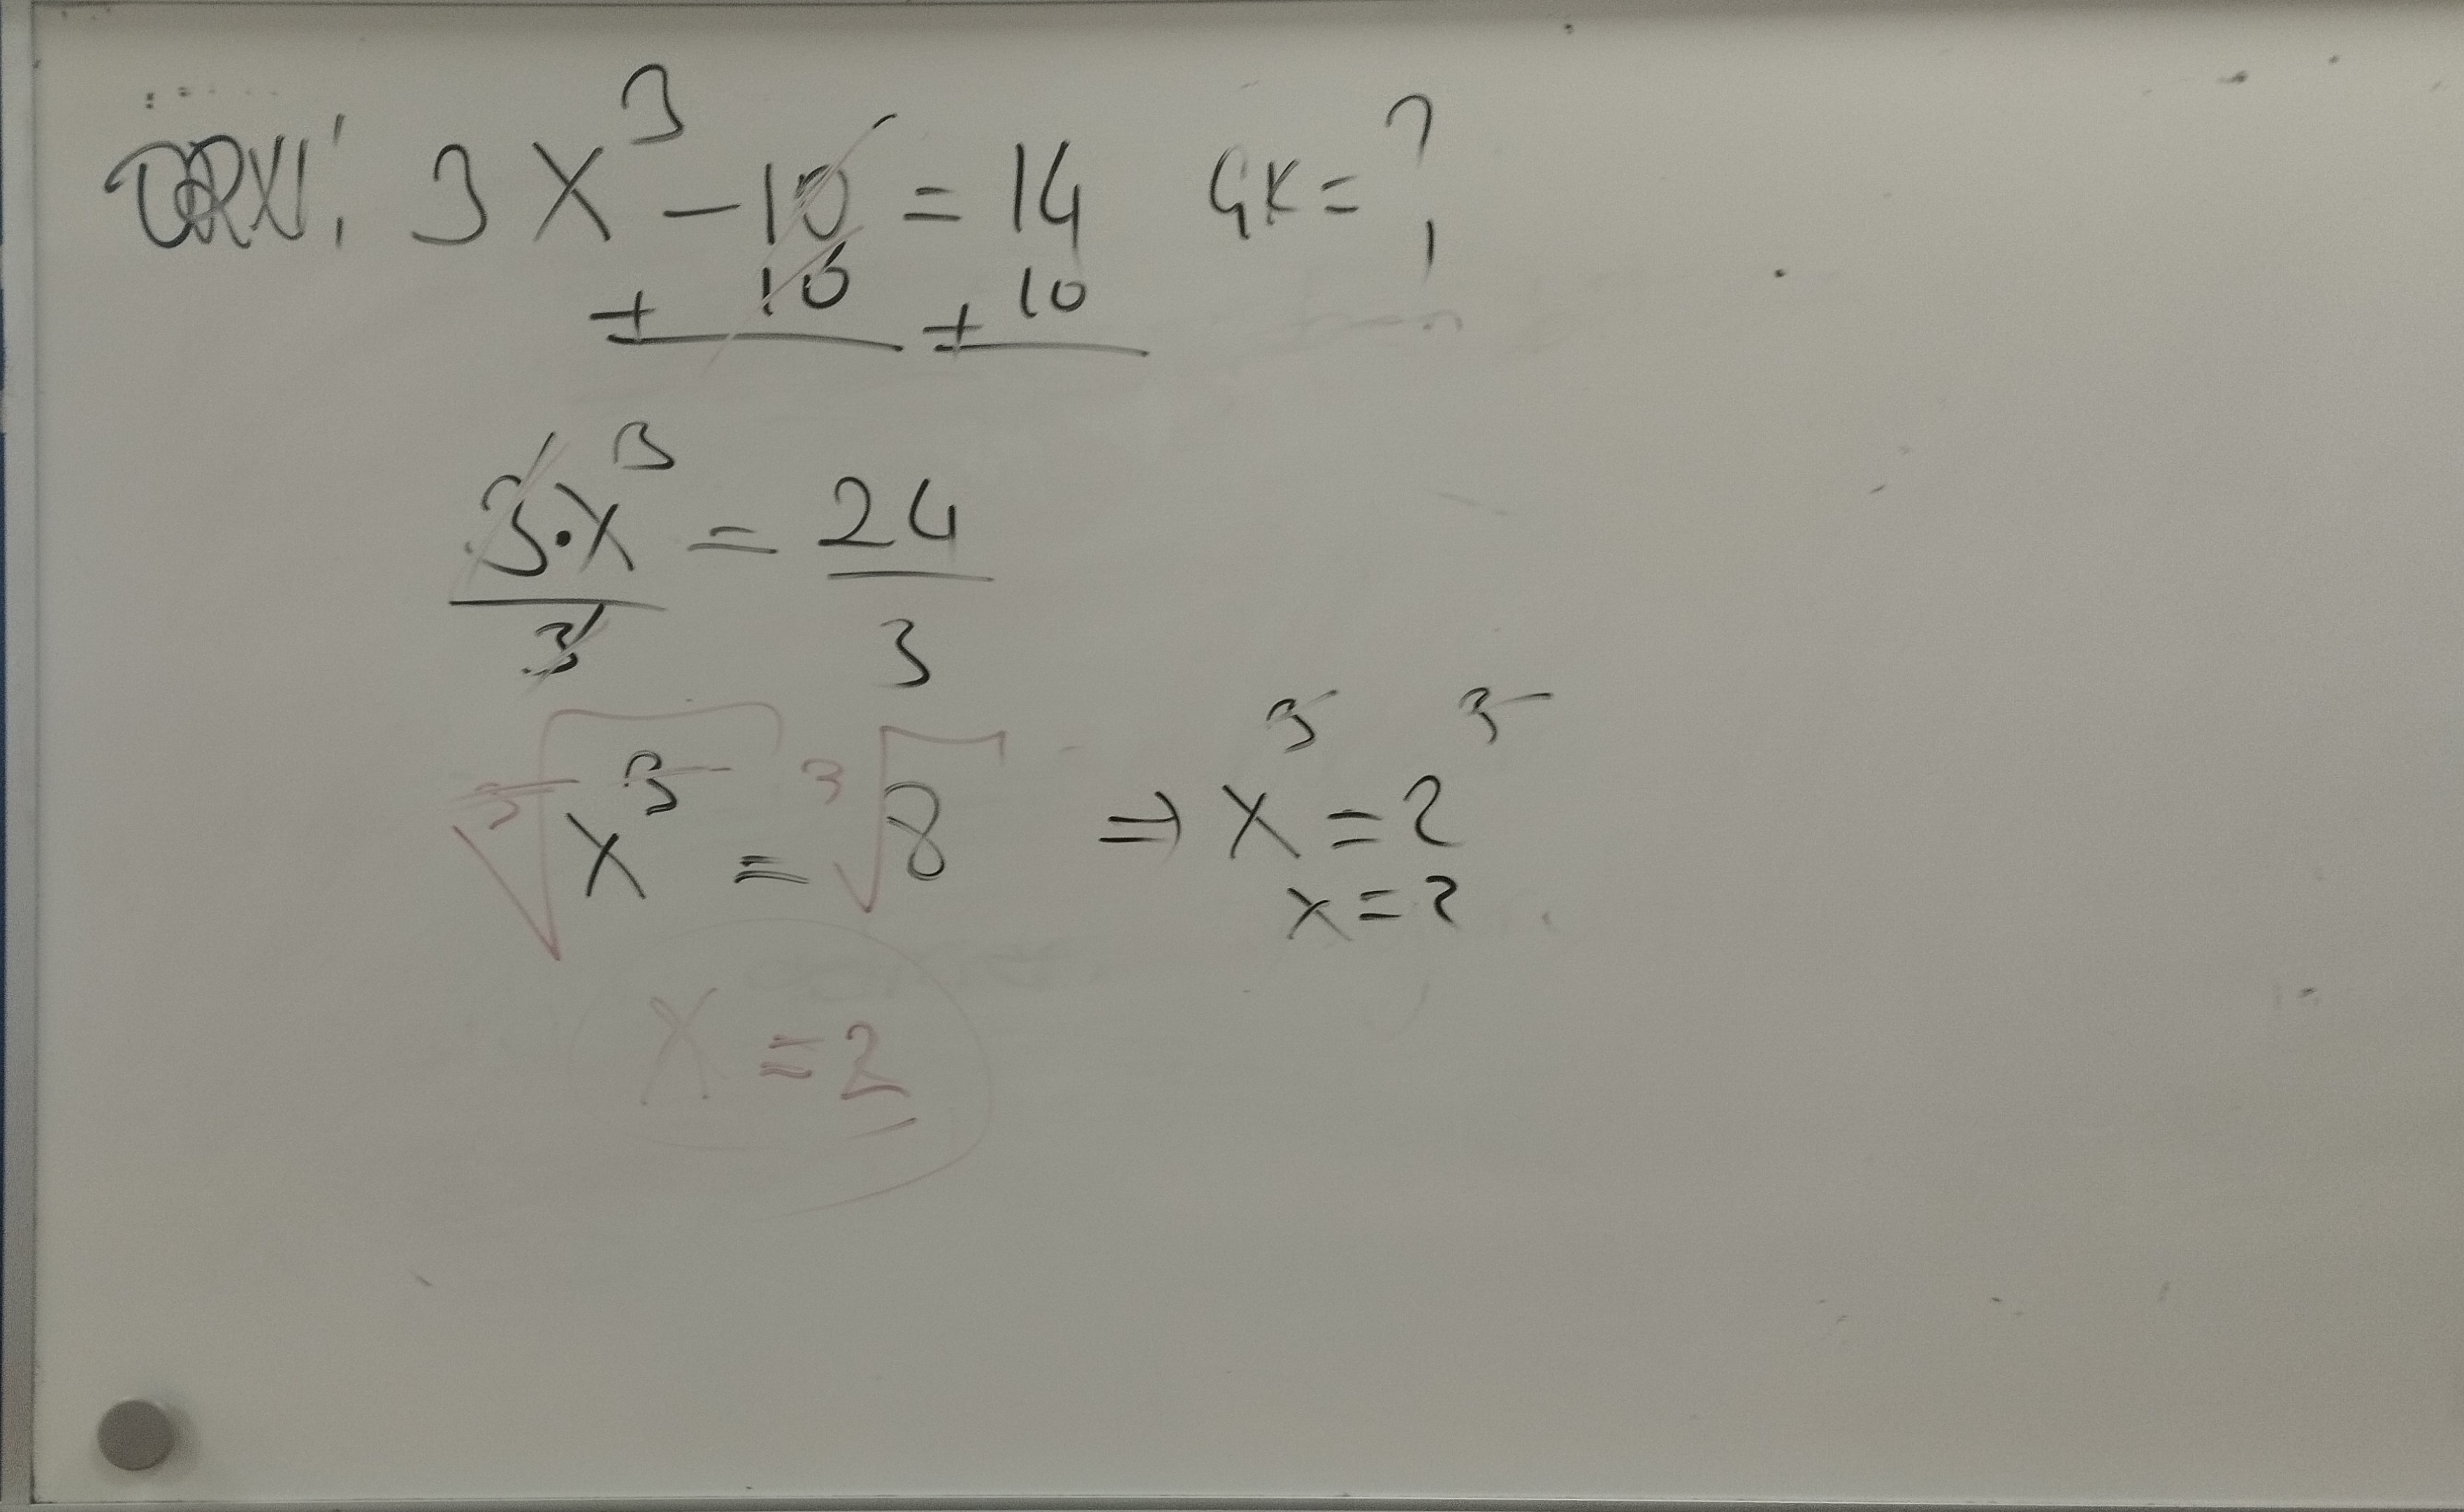 3x³ - 10 = 14 ÇK = ?
+ 10 + 10
3·x³ = 24
3 3
³√x³ = ³√8 ⇒ x³ = 2³
x = 2
x = 2